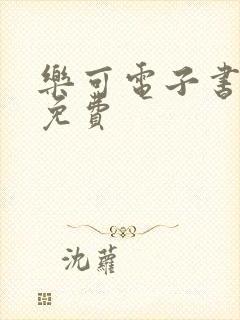 樂可電子書
免費
沈蘿